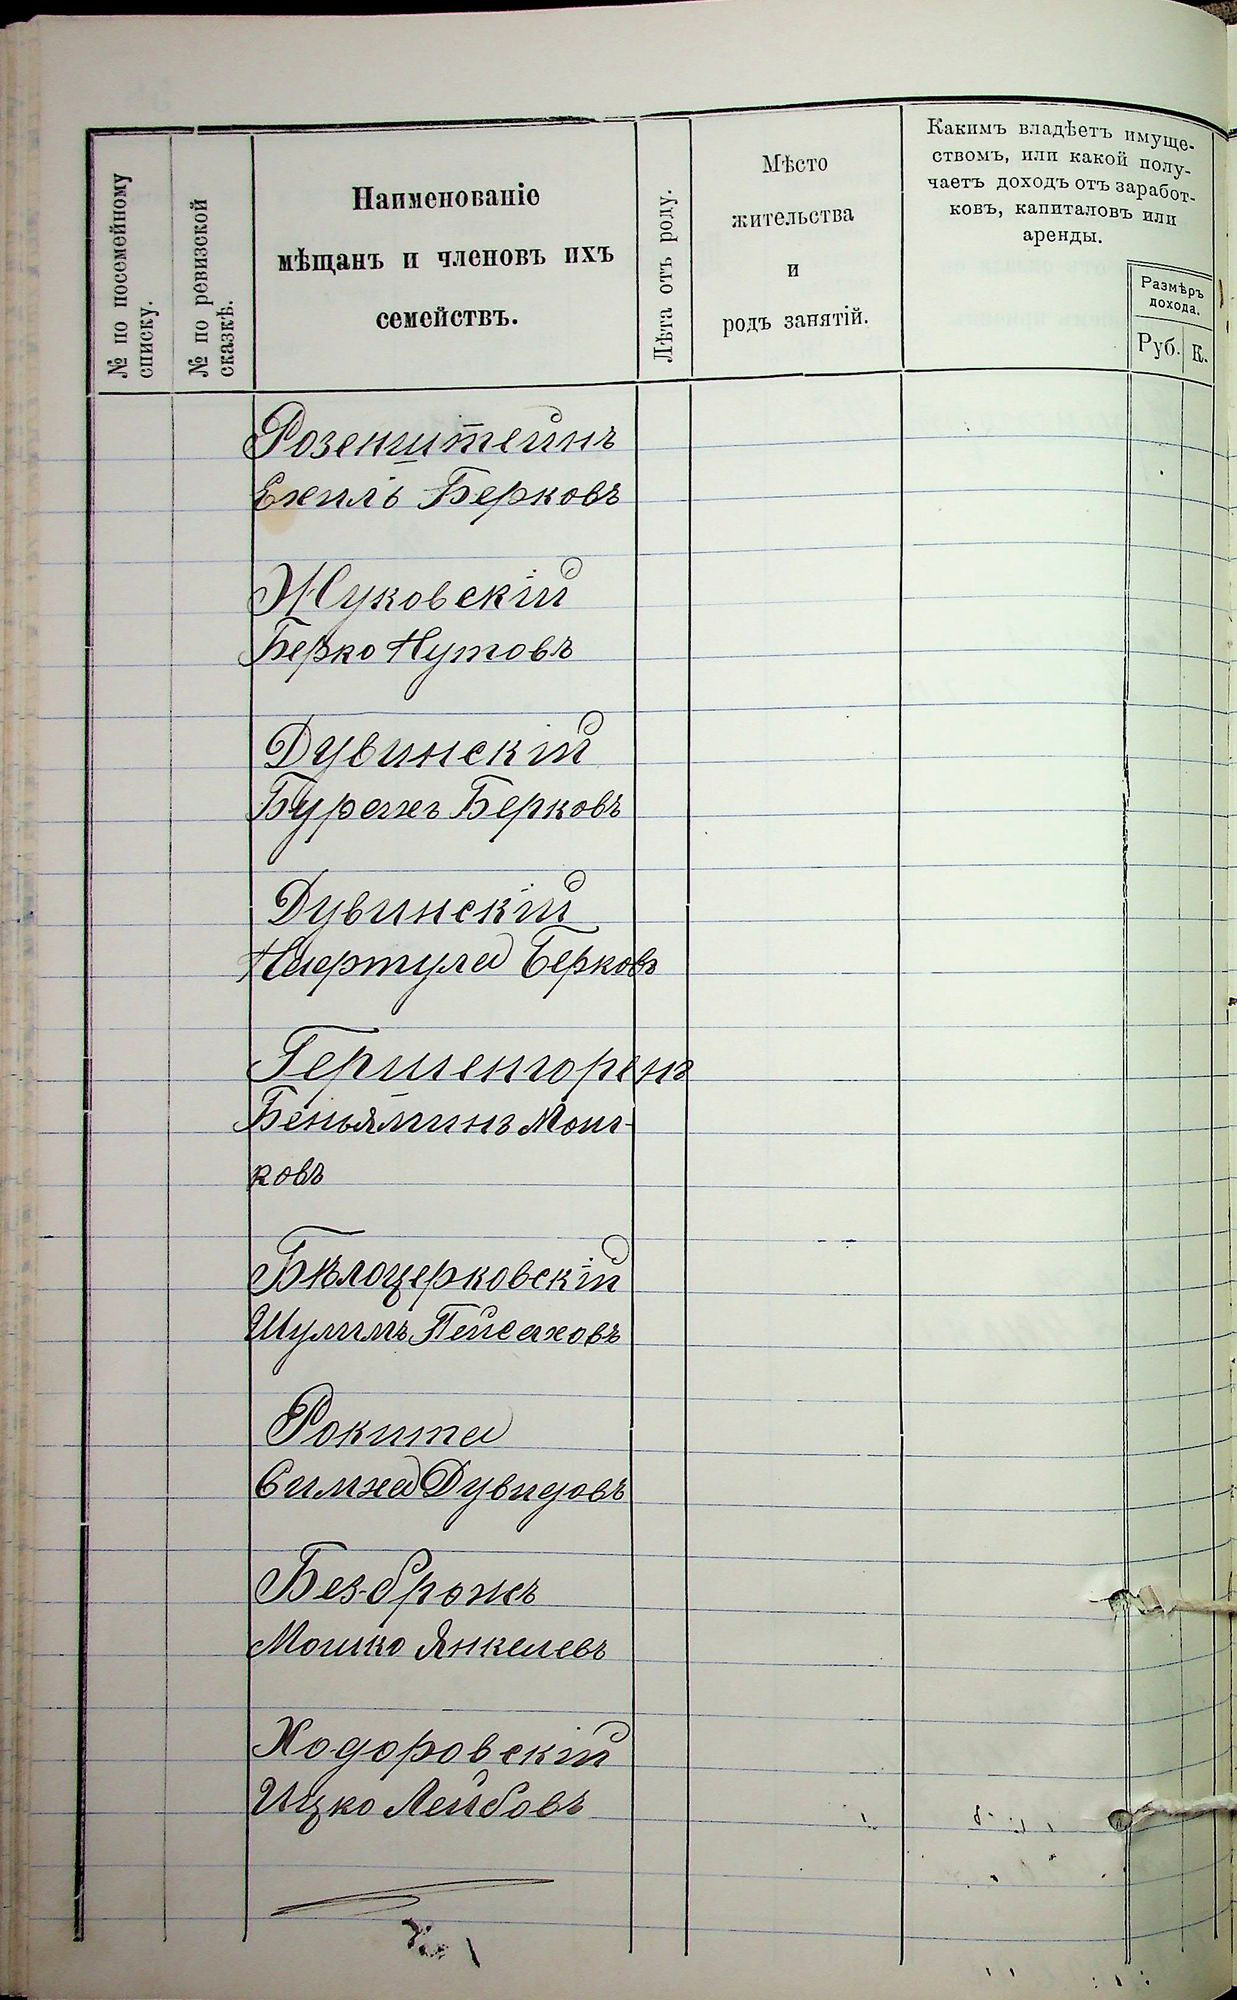 № по посемейному
списку.
№ по ревизской
сказкѣ.
Наименованіе
мѣщанъ и членовъ ихъ
семействъ.
Лѣта отъ роду.
Мѣсто
жительства
и
родъ занятій.
Какимъ владѣетъ имуще-
ствомъ, или какой полу-
чаетъ доходъ отъ заработ-
ковъ, капиталовъ или
аренды.
Размѣръ
дохода.
Руб.
К.
Розенштейнъ
Ехиль Берковъ
Жуковскій
Берко Нутовъ
Дувинскій
Бурехъ Берковъ
Дувинскій
Нафтула Берковъ
Гершенгоренъ
Беньяминъ Мош-
ковъ
Бѣлоцерковскій
Шулимъ Пейсаховъ
Рокита
Симха Дувидовъ
Без-брожъ
Мошко Янкелевъ
Ходоровскій
Ицко Лейбовъ